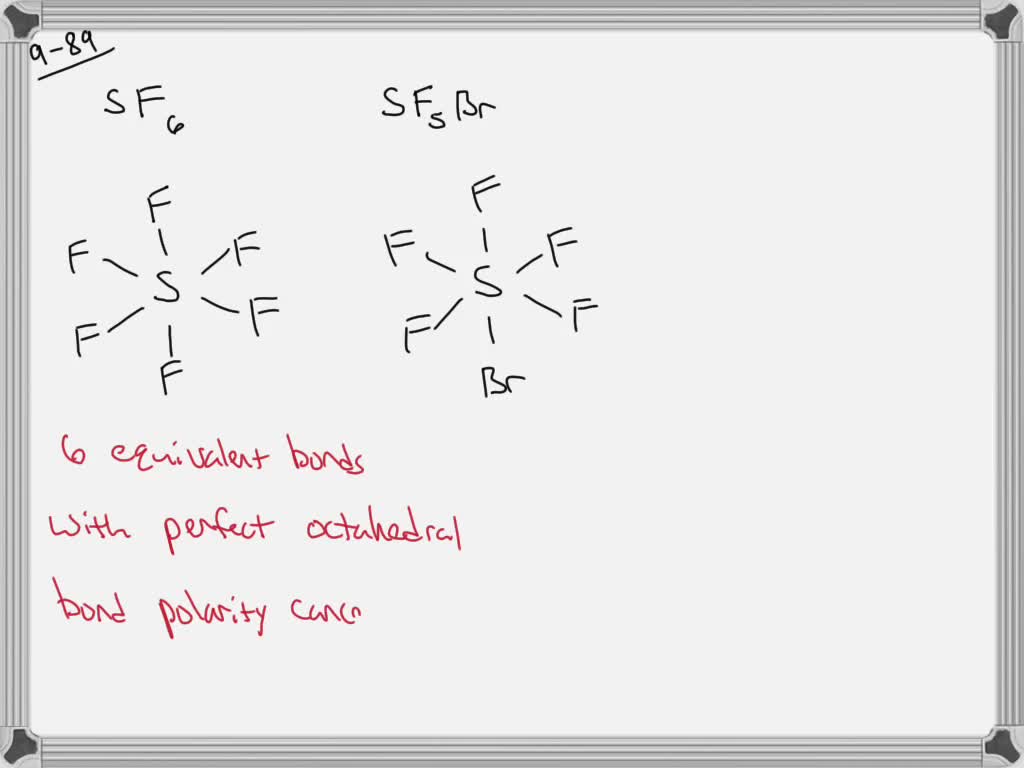 9-89
SF6 SF5Br
F F
F F F F
S S
F F F F
F Br
6 equivalent bonds
with perfect octahedral
bond polarity canc